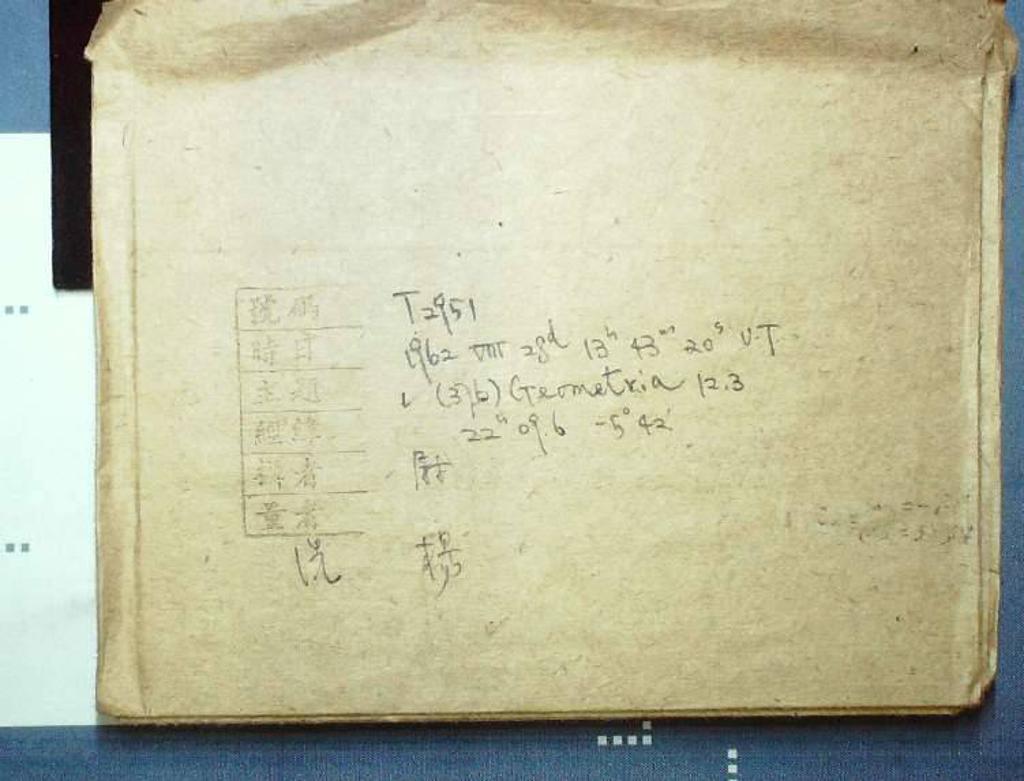 號碼 T2951
時日 1962 VIII 28d 13h 43m 20s U.T
主題 (376) Geometria 12.3
經緯 22h 09.6 -5° 42'
攝者
量者
洗 楊